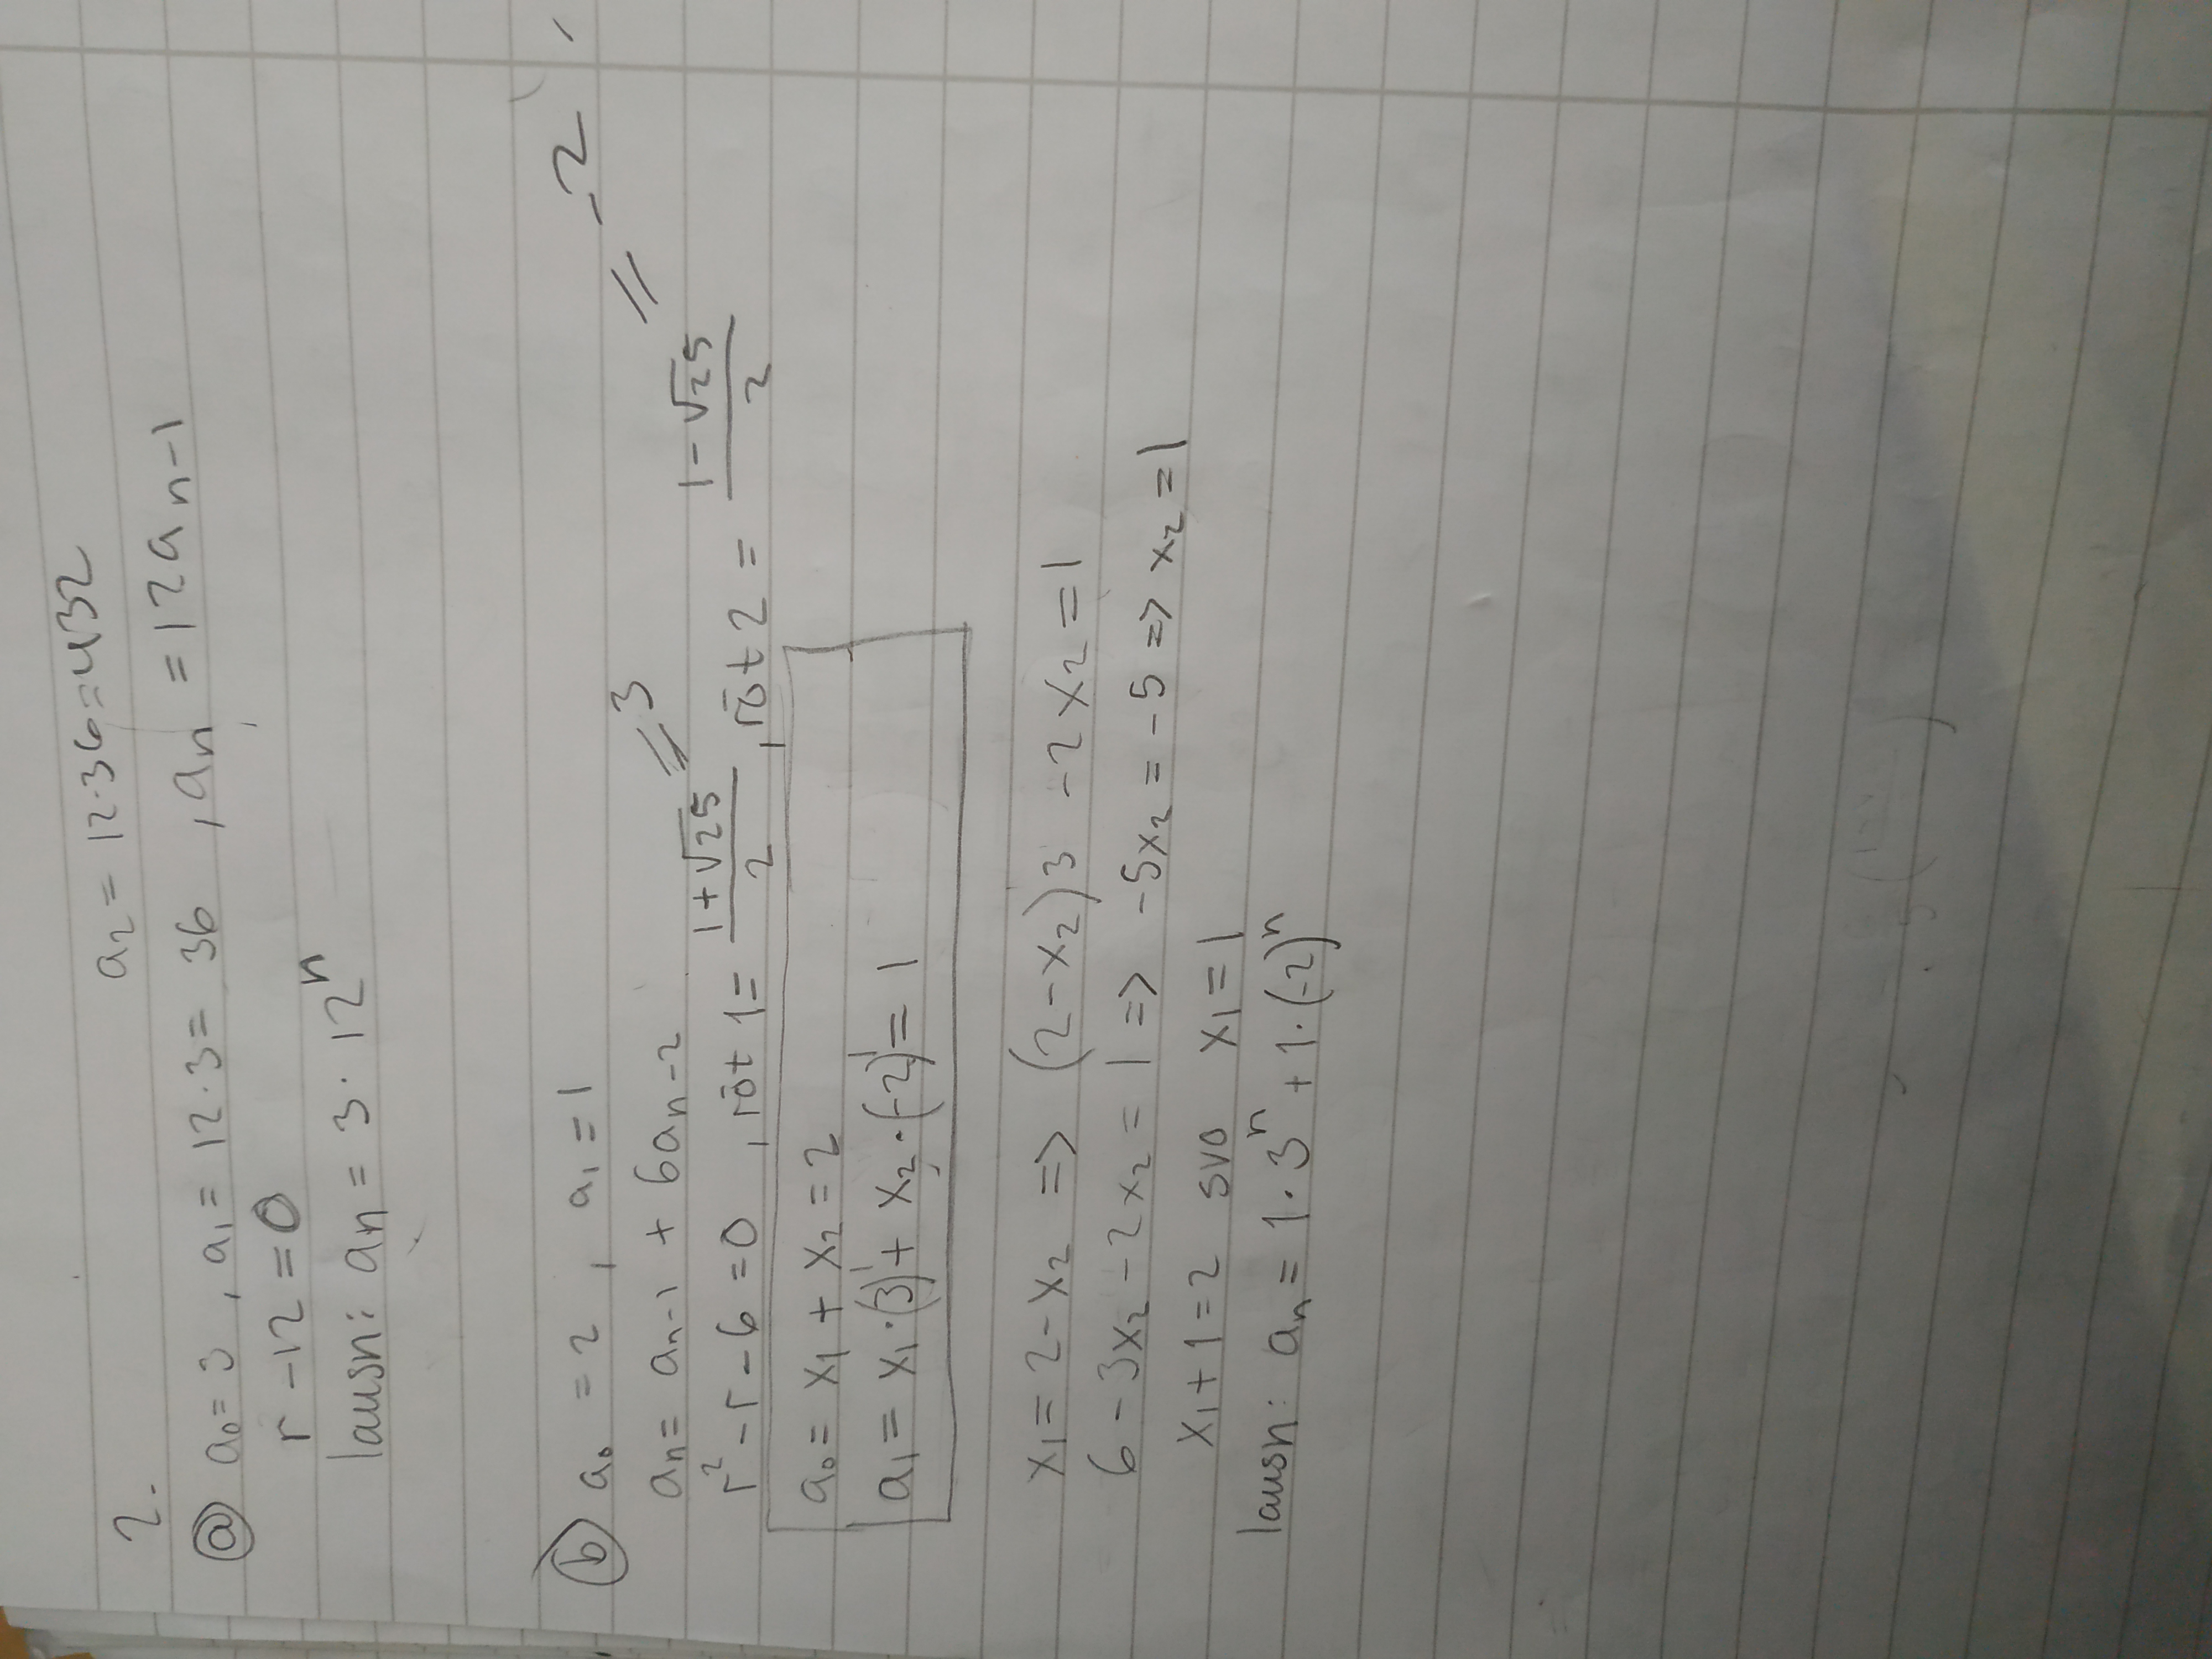 2.
a₂ = 12·36 = 432
ⓐ a₀ = 3 , a₁ = 12·3 = 36 , aₙ = 12aₙ₋₁
r - 12 = 0
lausn: aₙ = 3 · 12ⁿ
ⓑ a₀ = 2 , a₁ = 1
aₙ = aₙ₋₁ + 6aₙ₋₂
r² - r - 6 = 0 , rót 1 = (1+√25)/2 = 3 , rót 2 = (1-√25)/2 = -2
a₀ = x₁ + x₂ = 2
a₁ = x₁·(3)¹ + x₂·(-2)¹ = 1
x₁ = 2 - x₂ => (2-x₂)3 - 2x₂ = 1
6 - 3x₂ - 2x₂ = 1 => -5x₂ = -5 => x₂ = 1
x₁ + 1 = 2 svo x₁ = 1
lausn: aₙ = 1·3ⁿ + 1·(-2)ⁿ